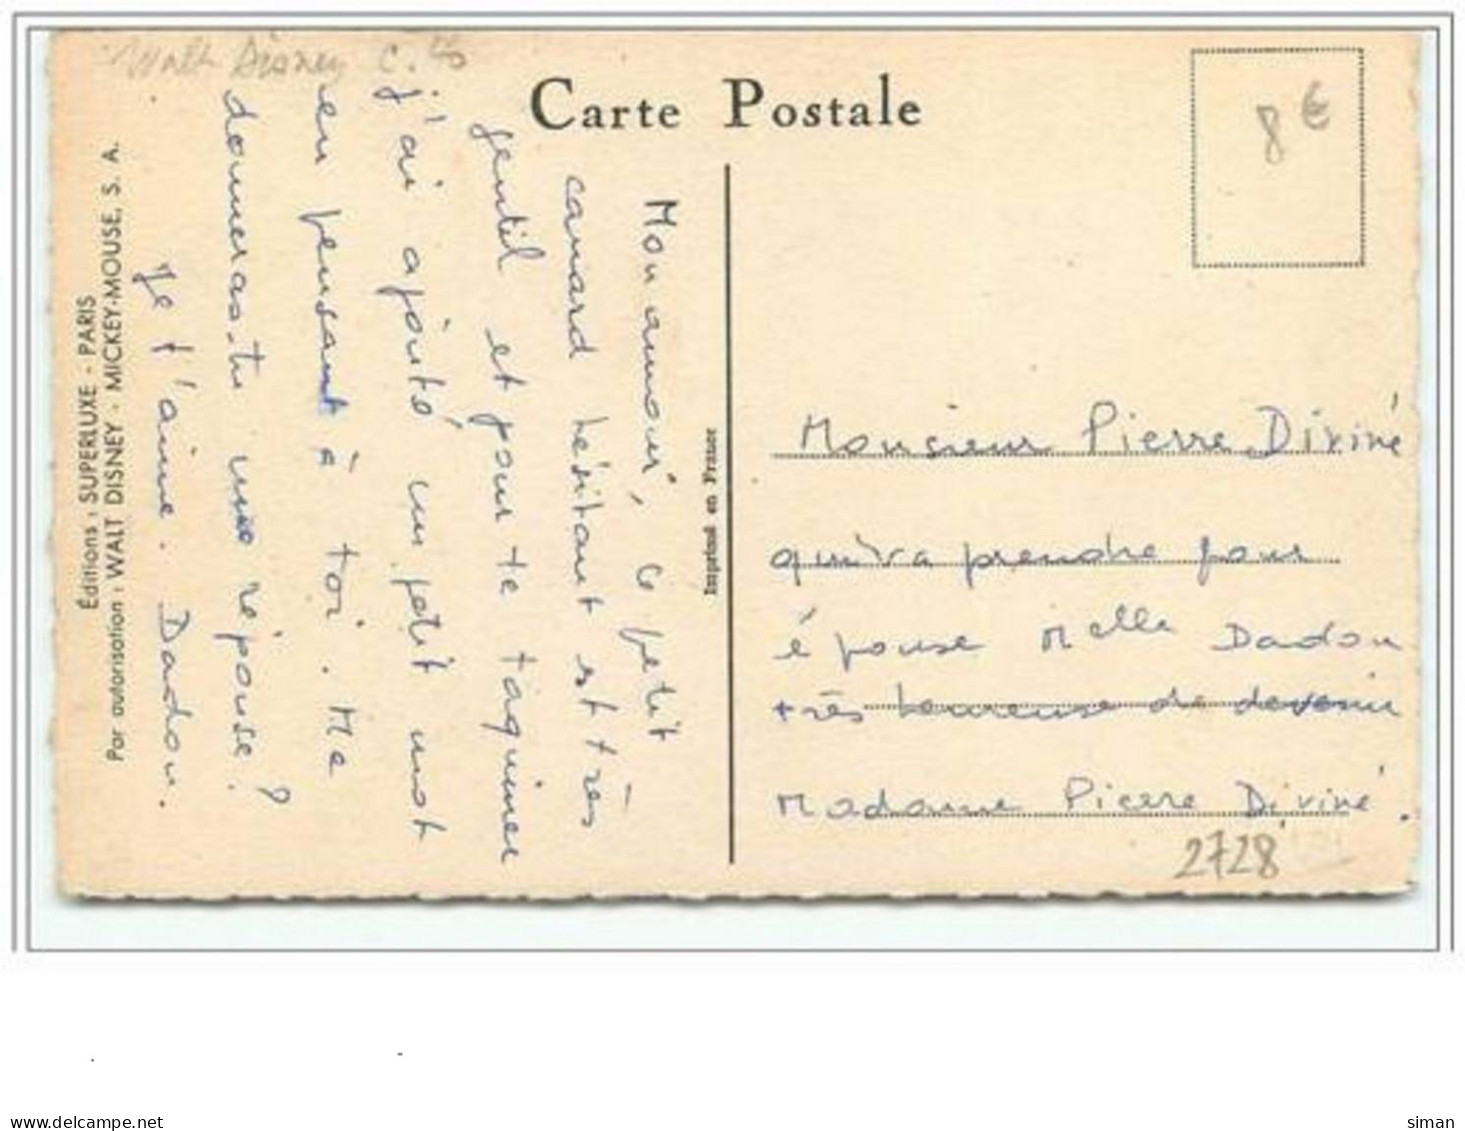 Walt Disney C. 40
Carte Postale
8€
Mon amour, ce petit
canard hésitant est très
gentil et pour te taquiner
j'ai ajouté un petit mot
en pensant à toi. Me
donneras-tu une réponse ?
Je t'aime. Dadou.
Éditions : SUPERLUXE - PARIS
Par autorisation : WALT DISNEY - MICKEY-MOUSE, S. A.
Imprimé en France
Monsieur Pierre Diviné
qui va prendre pour
épouse Melle Dadou
très heureuse de devenir
Madame Pierre Diviné.
2728
delcampe.net
siman